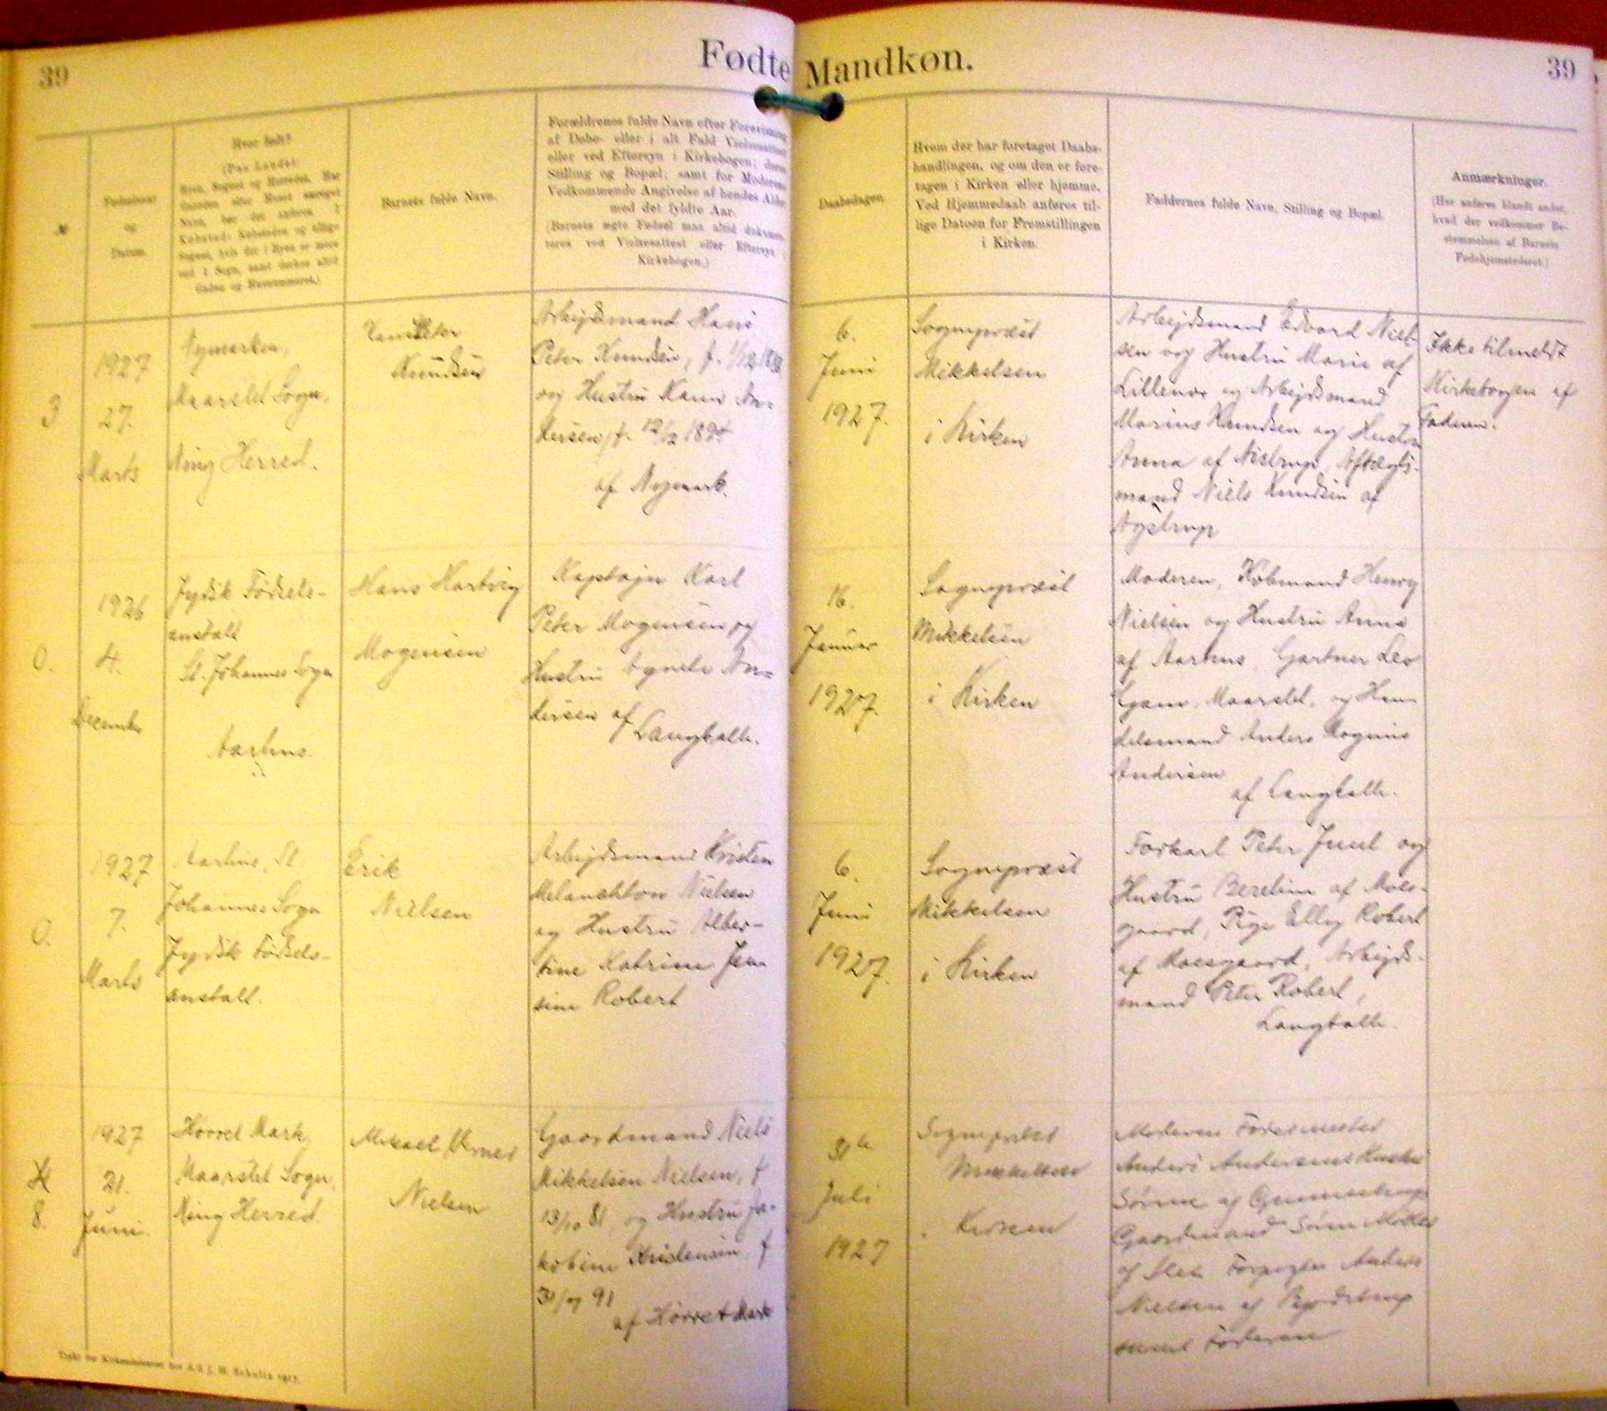 39
Fødte Mandkøn.
39
№
Fødselsaar
og
Datum.
Hvor født?
(Paa Landet:
Byen, Sognet og Herredet. Har
Gaarden eller Huset særeget
Navn, bør det anføres. I
Købstad: Købstaden og tillige
Sognet, hvis der i Byen er mere
end 1 Sogn, samt derhos altid
Gaden og Husnummeret.)
Barnets fulde Navn.
Forældrenes fulde Navn efter Forevisning
af Døbe- eller i alt Fald Vielsesattest
eller ved Eftersyn i Kirkebogen; deres
Stilling og Bopæl; samt for Moderens
Vedkommende Angivelse af hendes Alder
med det fyldte Aar.
(Barnets ægte Fødsel maa altid dokumen-
teres ved Vielsesattest eller Eftersyn i
Kirkebogen.)
Daabsdagen.
Hvem der har foretaget Daabs-
handlingen, og om den er fore-
tagen i Kirken eller hjemme.
Ved Hjemmedaab anføres til-
lige Datoen for Fremstillingen
i Kirken.
Faddernes fulde Navn, Stilling og Bopæl.
Anmærkninger.
(Her anføres blandt andet,
hvad der vedkommer Be-
stemmelsen af Barnets
Fødehjemstedsret.)
3
1927
27.
Marts
Nymarken,
Maarslet Sogn,
Ning Herred.
Peter
Knudsen
Arbejdsmand Hans
Peter Knudsen, f.
og Hustru Karen An-
dersen, f. 12/12 1894
af Nymark.
6.
Juni
1927.
Sognepræst
Mikkelsen
i Kirken
Arbejdsmand Edvard Niel-
sen og Hustru Marie af
Lillenor og Arbejdsmand
Marius Knudsen og Hustru
Anna af Aistrup, Aftægts-
mand Niels Knudsen af
Aystrup
Ikke tilmeldt
Kirkebogen af
Faderen.
0.
1926
4.
December
Jydsk Fødsels-
anstalt
St. Johannes Sogn
Aarhus.
Hans Hartvig
Mogensen
Kaptajn Karl
Peter Mogensen og
Hustru Agnete An-
dersen af
Langballe.
16.
Januar
1927.
Sognepræst
Mikkelsen
i Kirken
Moderen, Købmand Henry
Nielsen og Hustru Anna
af Aarhus, Gartner Leo
Maarslet, og Han-
delsmand Anders Mogens
Andersen
af Langballe.
0.
1927
7.
Marts
Aarhus, St.
Johannes Sogn
Jydsk Fødsels-
anstalt.
Erik
Nielsen
Arbejdsmand Kristen
Melanchton Nielsen
og Hustru Alber-
tine Katrine Jen-
sine Robert
6.
Juni
1927.
Sognepræst
Mikkelsen
i Kirken
Forkarl Peter Juul og
Hustru Bereline af Moes-
gaard, Pige Elly Robert
af Moesgaard, Arbejds-
mand Peter Robert,
Langballe.
8.
1927
21.
Juni.
Hørret Mark,
Maarslet Sogn,
Ning Herred
Mikael Verner
Nielsen
Gaardmand Niels
Mikkelsen Nielsen, f
13/10 81, og Hustru Ja-
kobine Kristensen, f
91
af Hørret Mark
Juli
1927
Sognepræst
Mikkelsen
i Kirken
Moderen Fodermester
Anders Andersens Hustru
Sørine af
Gaardmand Søren Møller
af Slet Forpagter Anders
Nielsen af
samt Faderen
Trykt for Kirkeministeriet hos A/S J. H. Schultz 1917.